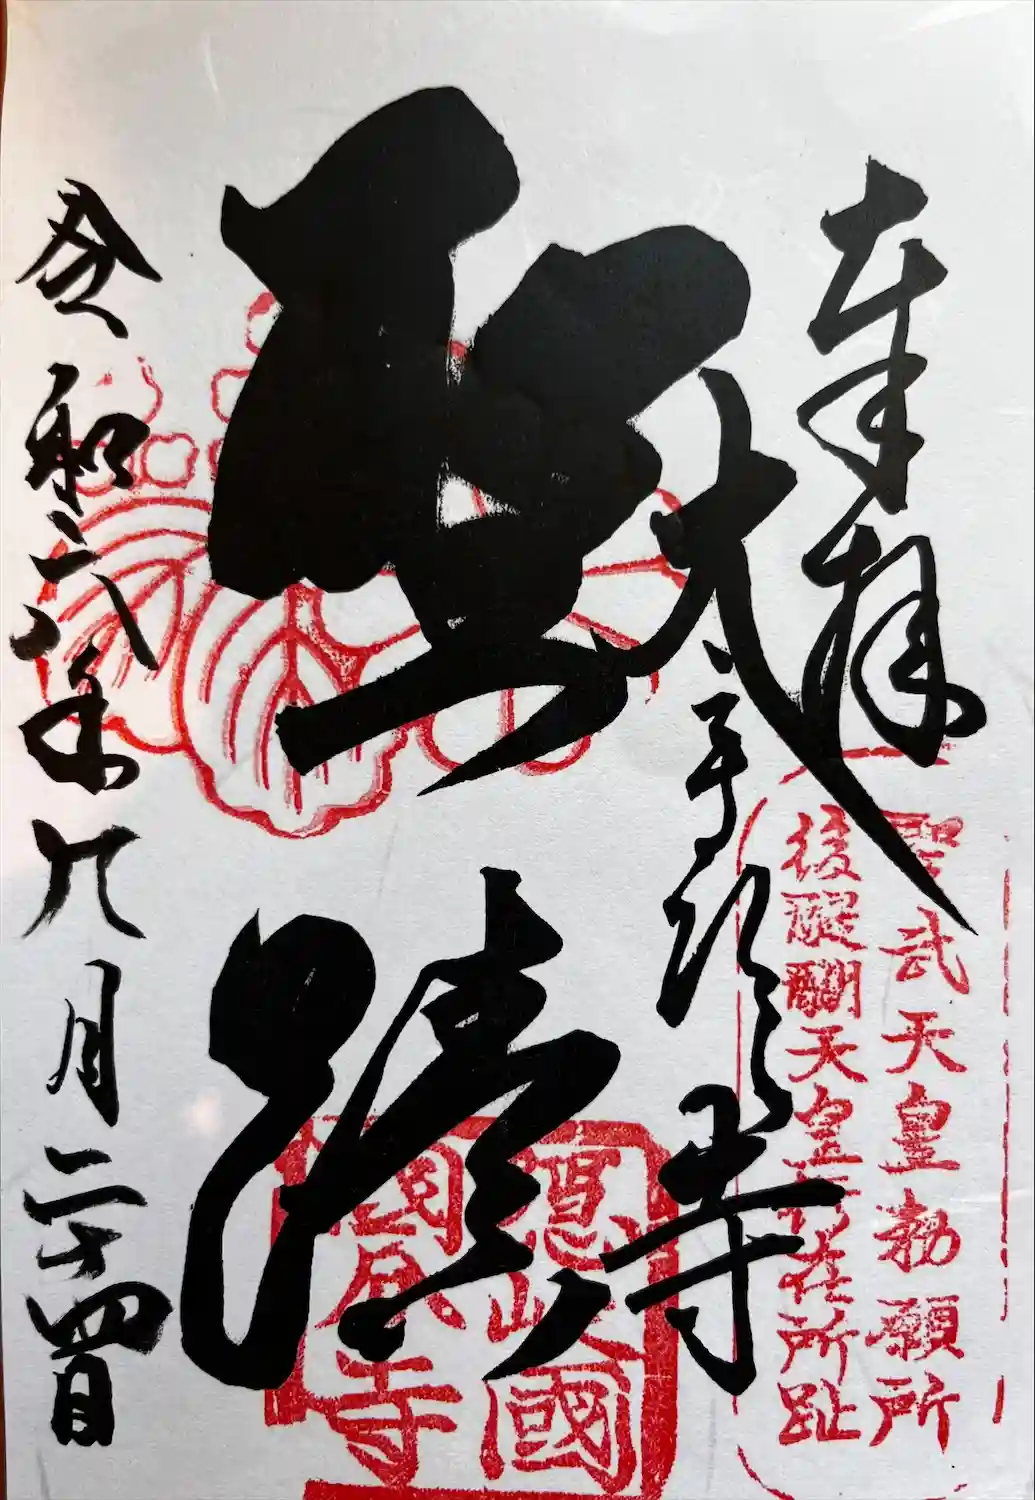 奉拝
聖武天皇勅願所
後醍醐天皇行在所趾
聖蹟
寺
隠岐國
國分寺
令和六年九月二十四日